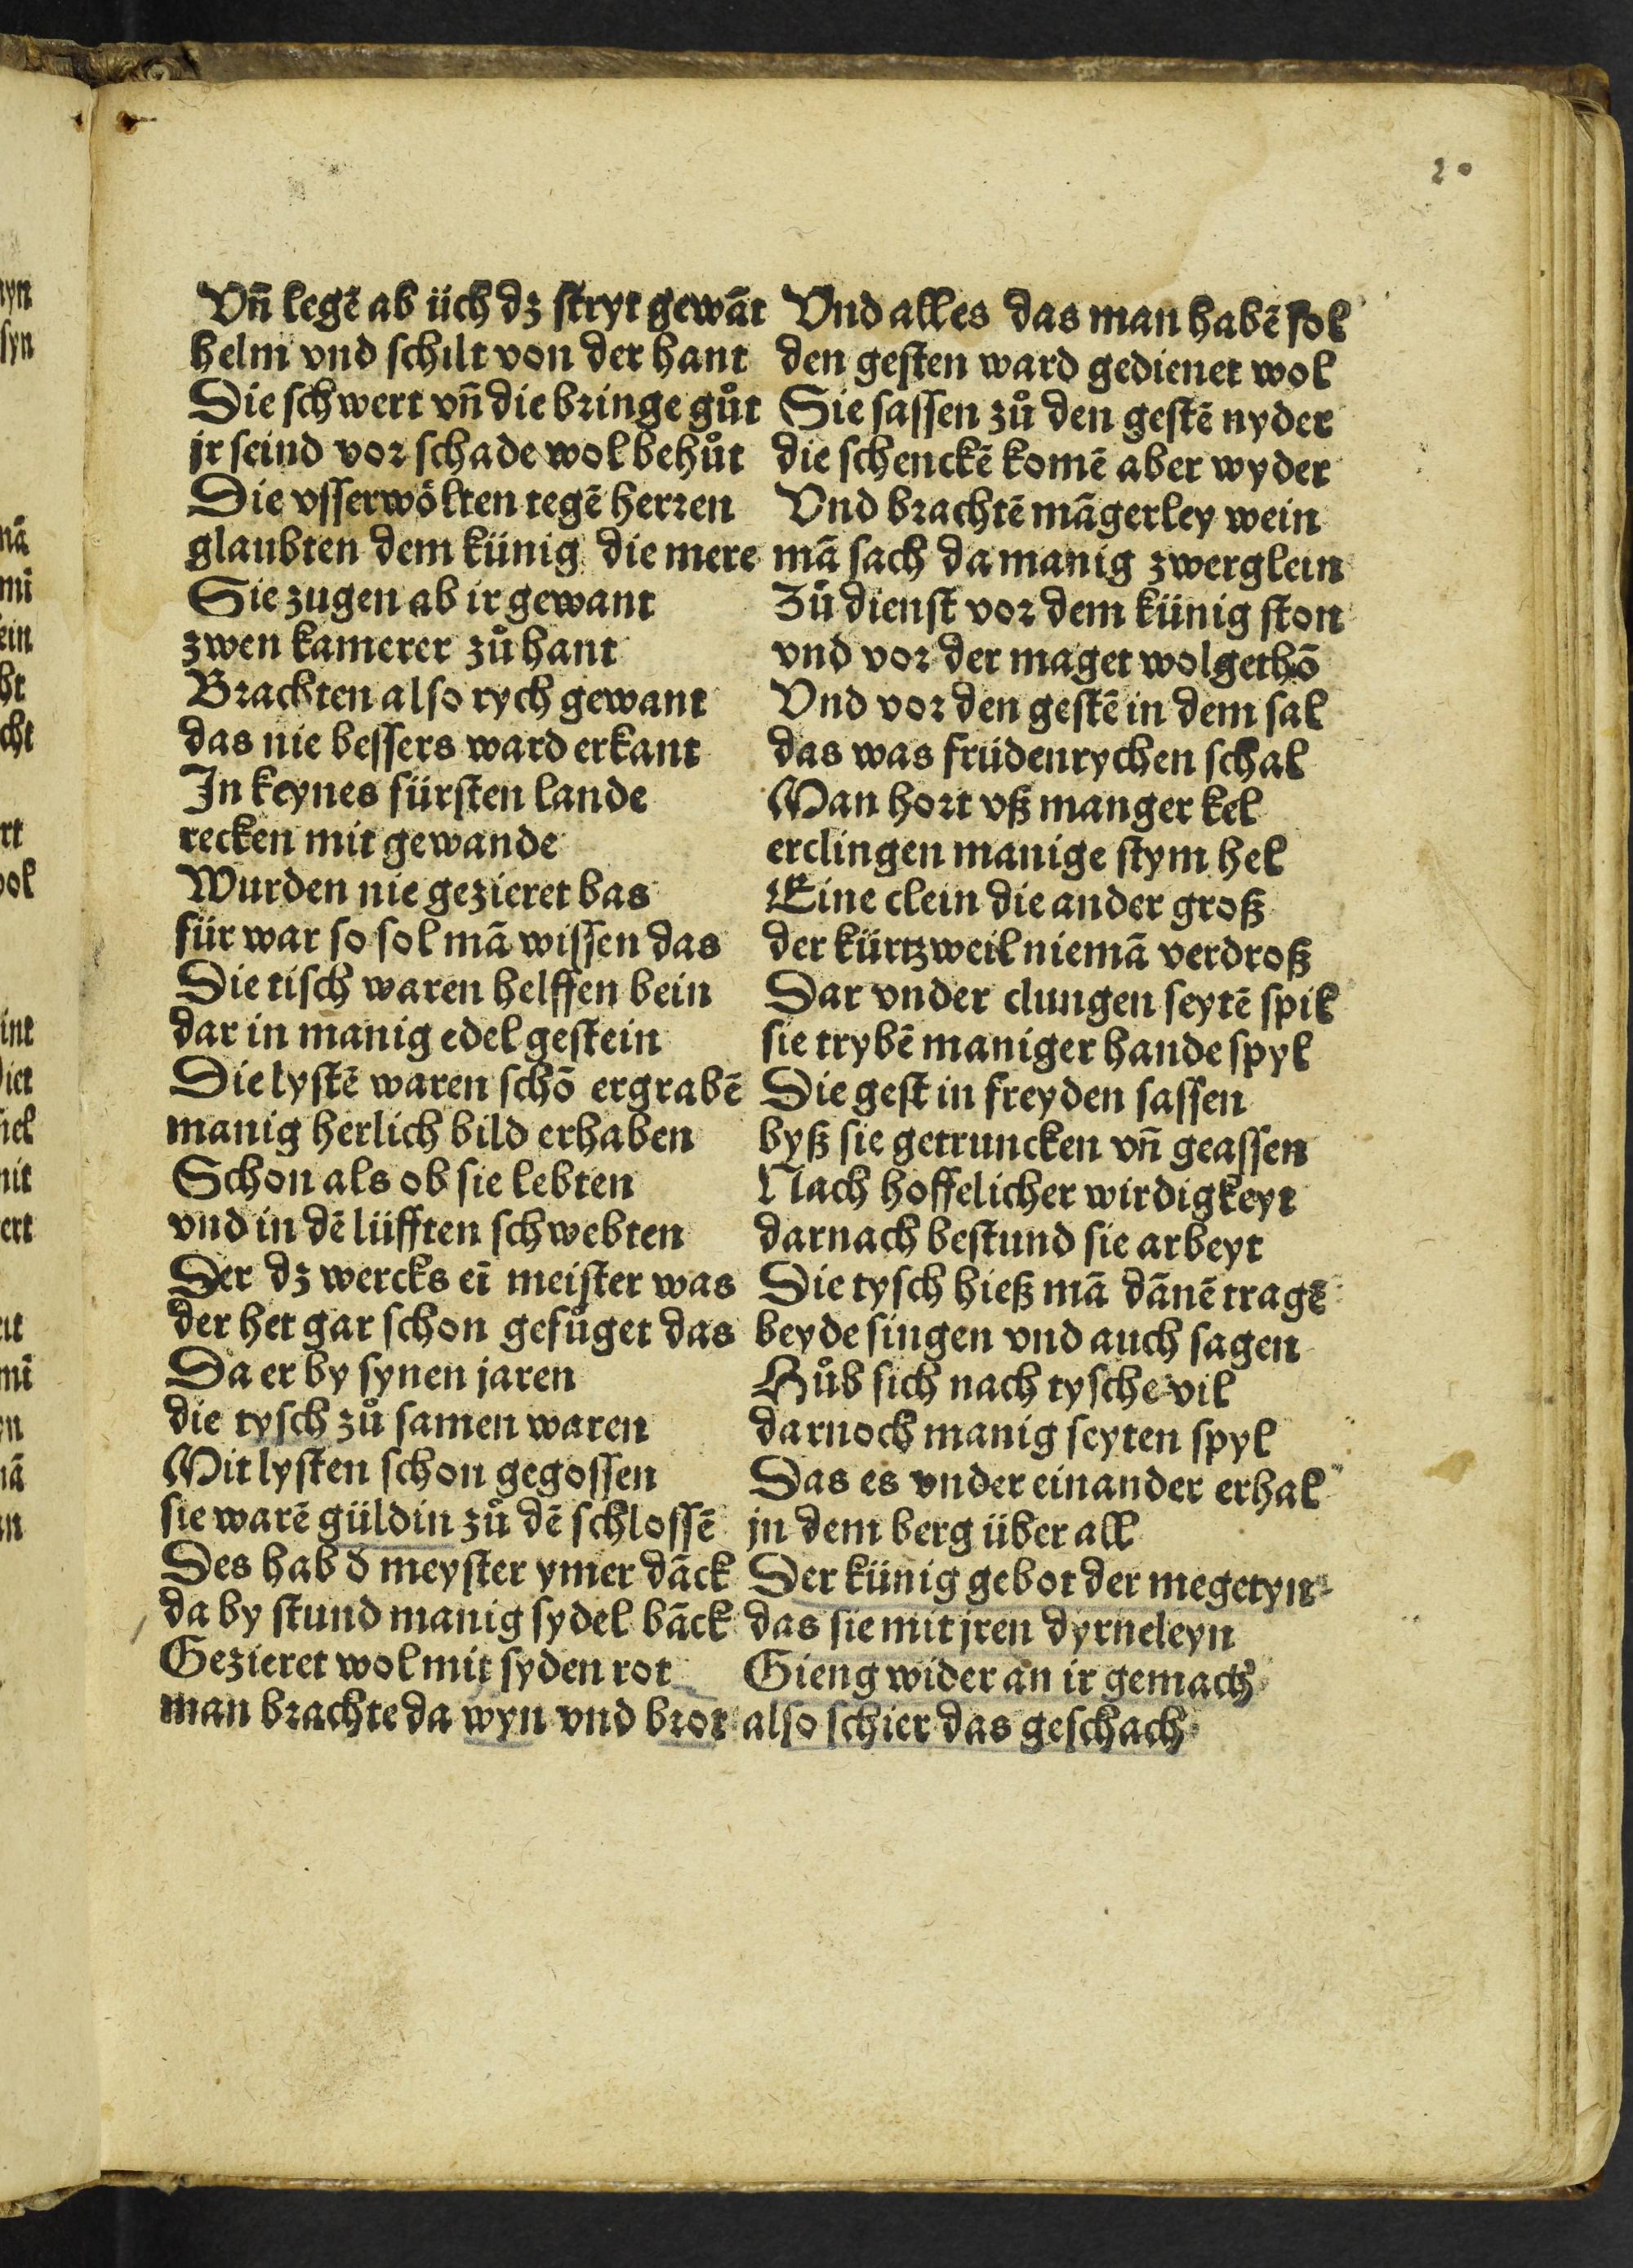 20
Vñ legē ab üch dz stryt gewāt
helm vnd schilt von der hant
Die schwert vñ die bringe gůt
jr seind vor schade wol behůt
Die vsserwölten tegē herren
glaubten dem künig die mere
Sie zugen ab ir gewant
zwen kamerer zů hant
Brachten also rych gewant
das nie bessers ward erkant
In keynes fürsten lande
recken mit gewande
Wurden nie gezieret bas
für war so sol mā wissen das
Die tisch waren helffen bein
dar in manig edel gestein
Die lystē waren schō ergrabē
manig herlich bild erhaben
Schon als ob sie lebten
vnd in dē lüfften schwebten
Der dz wercks eī meister was
der het gar schon gefůget das
Da er by synen jaren
die tysch zů samen waren
Mit lysten schon gegossen
sie warē güldin zů dē schlossē
Des hab d̄ meyster ymer dāck
da by stund manig sydel bāck
Gezieret wol mit syden rot
man brachte da wyn vnd brot
Vnd alles das man habē sol
den gesten ward gedienet wol
Sie sassen zů den gestē nyder
die schenckē komē aber wyder
Vnd brachtē māgerley wein
mā sach da manig zwerglein
Zů dienst vor dem künig ston
vnd vor der maget wolgethō
Vnd vor den gestē in dem sal
das was früdenrychen schal
Man hort vß manger kel
erclingen manige stym hel
Eine clein die ander groß
der kürtzweil niemā verdroß
Dar vnder clungen seytē spil
sie trybē maniger hande spyl
Die gest in freyden sassen
byß sie getruncken vñ geassen
Nach hoffelicher wirdigkeyt
darnach bestund sie arbeyt
Die tysch hieß mā dānē tragē
beyde singen vnd auch sagen
Hůb sich nach tysche vil
darnoch manig seyten spyl
Das es vnder einander erhal
jn dem berg über all
Der künig gebot der megetyn
das sie mit jren dyrneleyn
Gieng wider an ir gemach
also schier das geschach